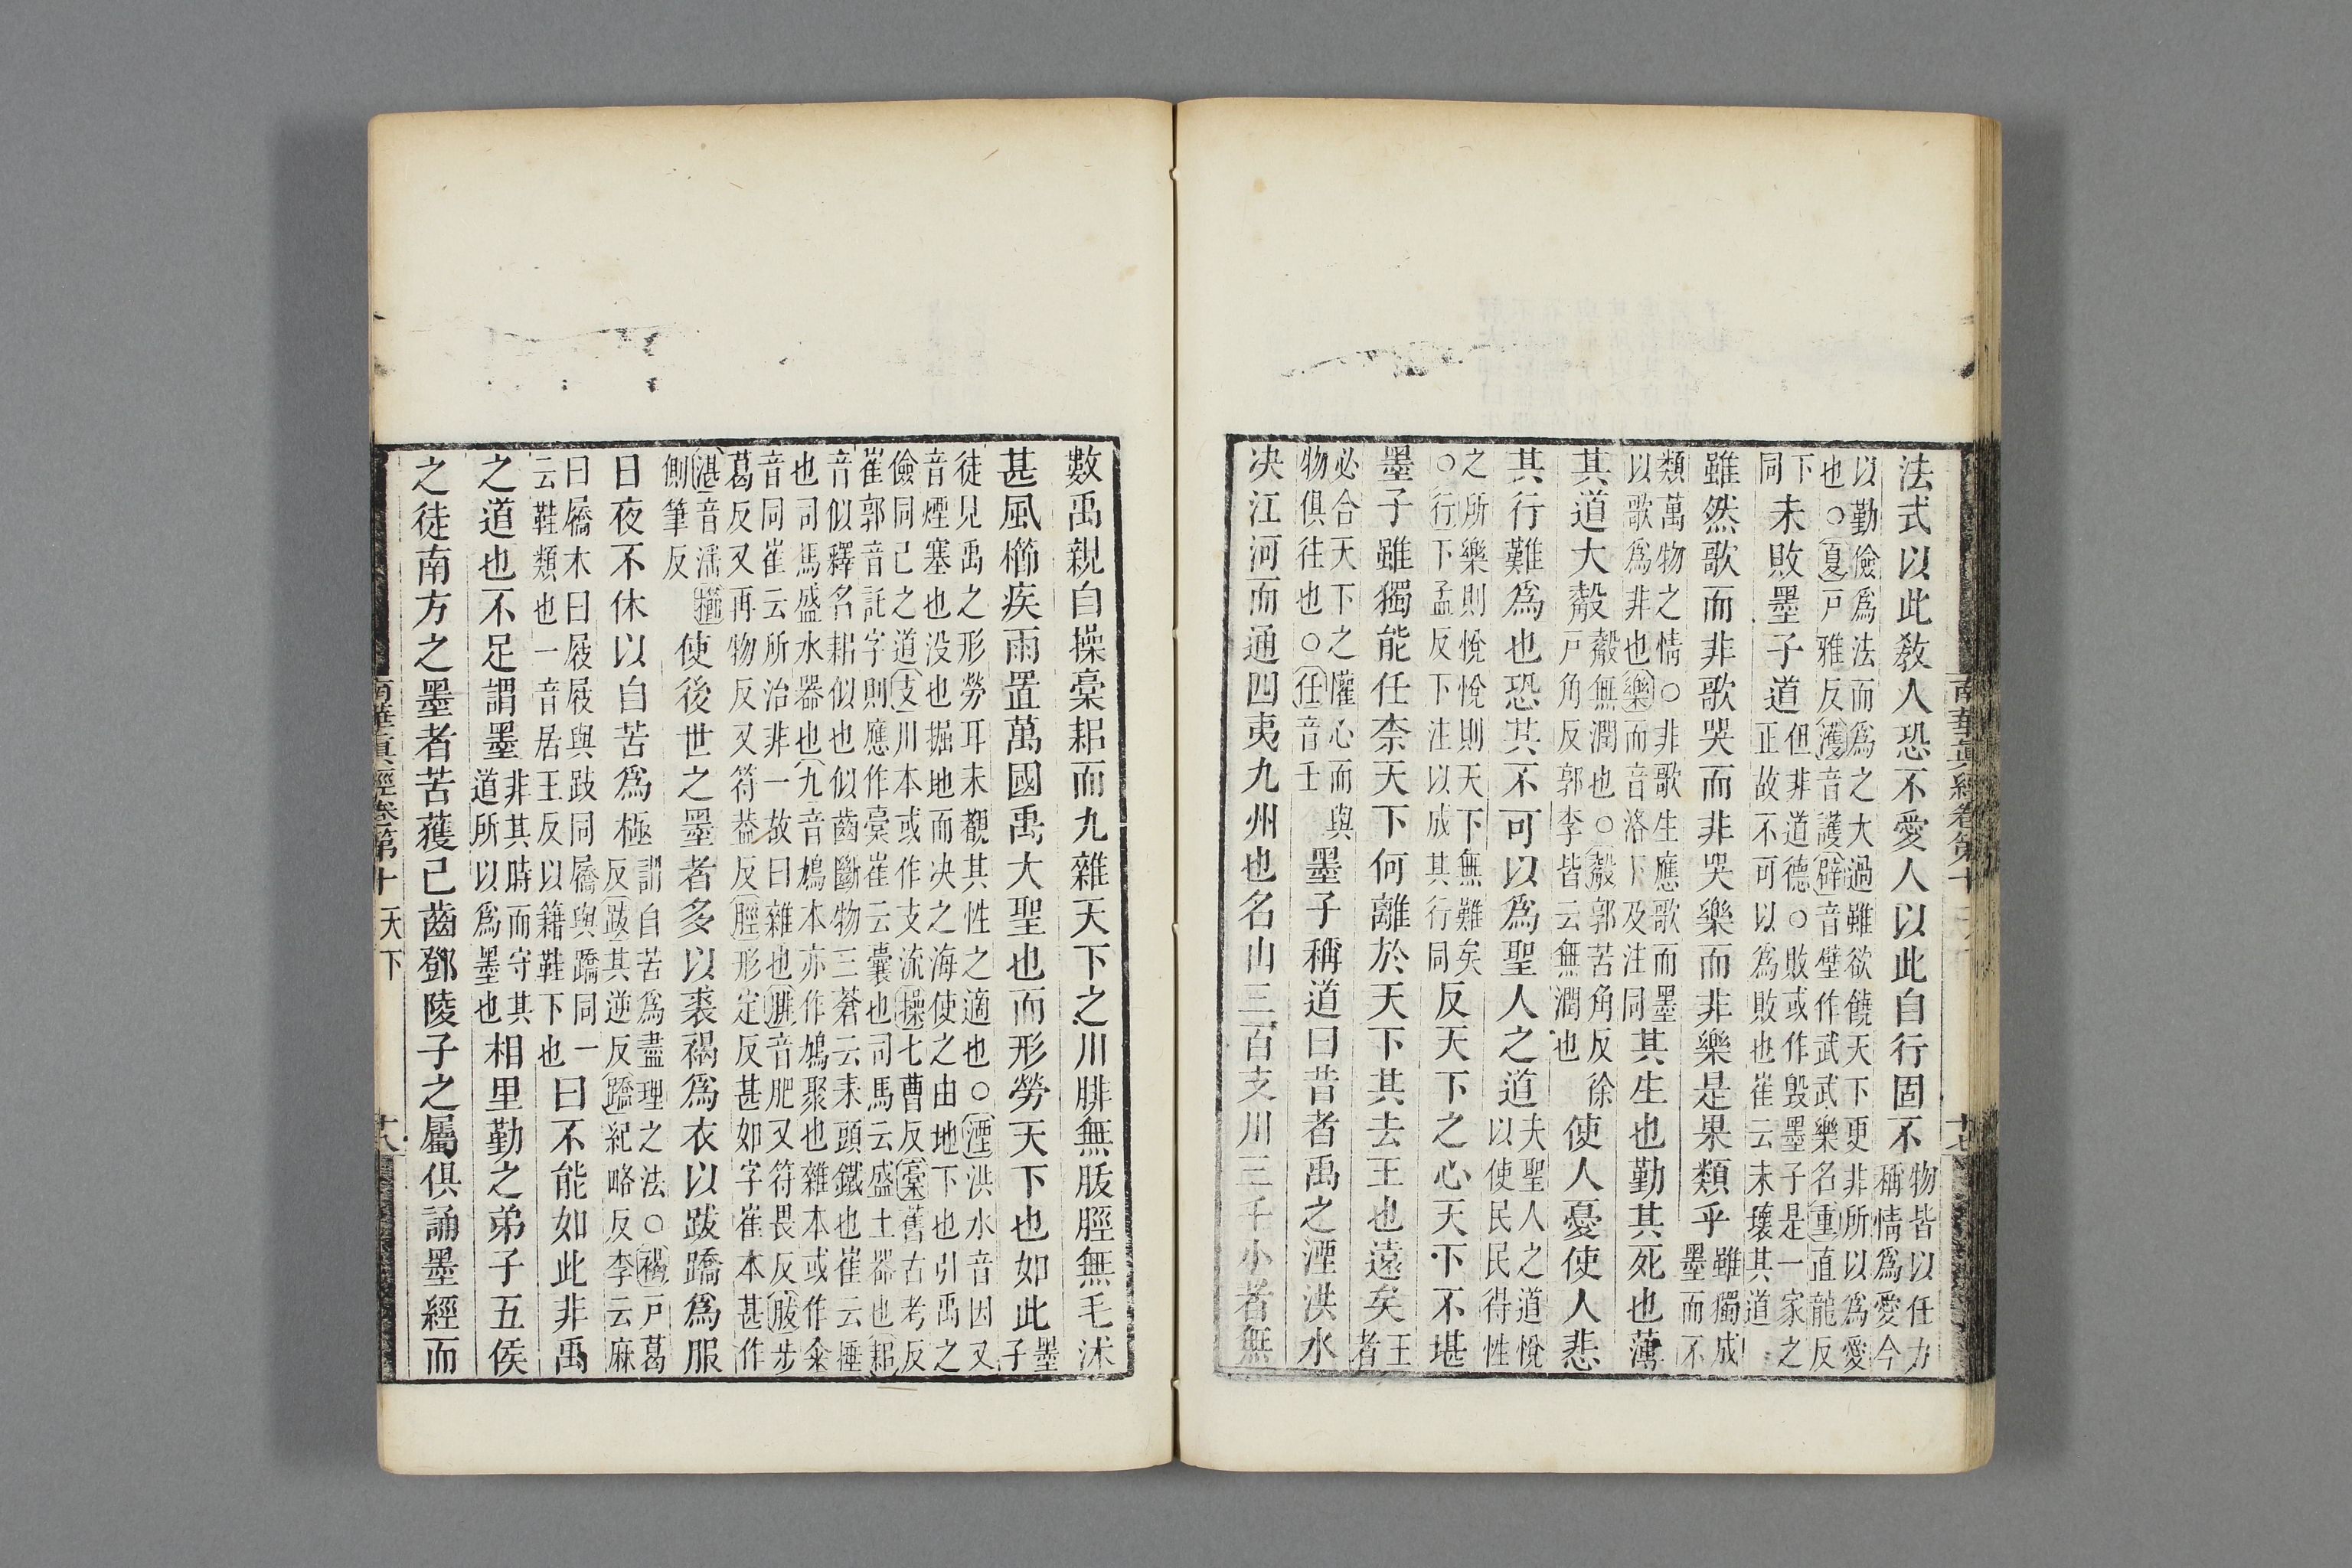 南華眞經卷第十
十七
法式以此教人恐不愛人以此自行固不物皆以任力稱情爲愛今
以勤儉爲法而爲之大過雖欲饒天下更非所以爲愛
也○夏戸雅反濩音護辟音壁作武武樂名重直龍反
下同未敗墨子道但非道德○敗或作毁墨子是一家之正故不可以爲敗也崔云未壞其道
雖然歌而非歌哭而非哭樂而非樂是果類乎雖獨成墨而不
類萬物之情○非歌生應歌而墨以歌爲非也樂而音洛下及注同其生也勤其死也薄
其道大觳觳無潤也○觳郭苦角反徐戸角反郭李皆云無潤也使人憂使人悲
其行難爲也恐其不可以爲聖人之道夫聖人之道悅以使民民得性
之所樂則悅悅則天下無難矣○行下孟反下注以成其行同反天下之心天下不堪
墨子雖獨能任柰天下何離於天下其去王也遠矣王者
必合天下之懽心而與物俱往也○任音壬墨子稱道曰昔者禹之湮洪水
决江河而通四夷九州也名山三百支川三千小者無
數禹親自操橐耜而九雜天下之川腓無胈脛無毛沐
甚風櫛疾雨置萬國禹大聖也而形勞天下也如此墨子
徒見禹之形勞耳未覩其性之適也○湮洪水音因又
音煙塞也没也掘地而决之海使之由地下也引禹之
儉同己之道支川本或作支流操七曹反橐舊古考反
崔郭音託字則應作橐崔云囊也司馬云盛土器也耜
音似釋名耜似也似齒斷物三蒼云耒頭鐵也崔云棰
也司馬盛水器也九音鳩本亦作鳩聚也雜本或作籴
音同崔云所治非一故曰雜也腓音肥又符畏反胈步
葛反又再物反又符葢反脛形定反甚如字崔本甚作
湛音淫櫛側筆反使後世之墨者多以裘褐爲衣以跂蹻爲服
日夜不休以自苦爲極謂自苦爲盡理之法○褐戸葛反跂其逆反蹻紀略反李云麻
曰屩木曰屐屐與跂同屩與蹻同一云鞋類也一音居玉反以籍鞋下也曰不能如此非禹
之道也不足謂墨非其時而守其道所以爲墨也相里勤之弟子五侯
之徒南方之墨者苦獲己齒鄧陵子之屬俱誦墨經而
南華眞經卷第十 天下
十八